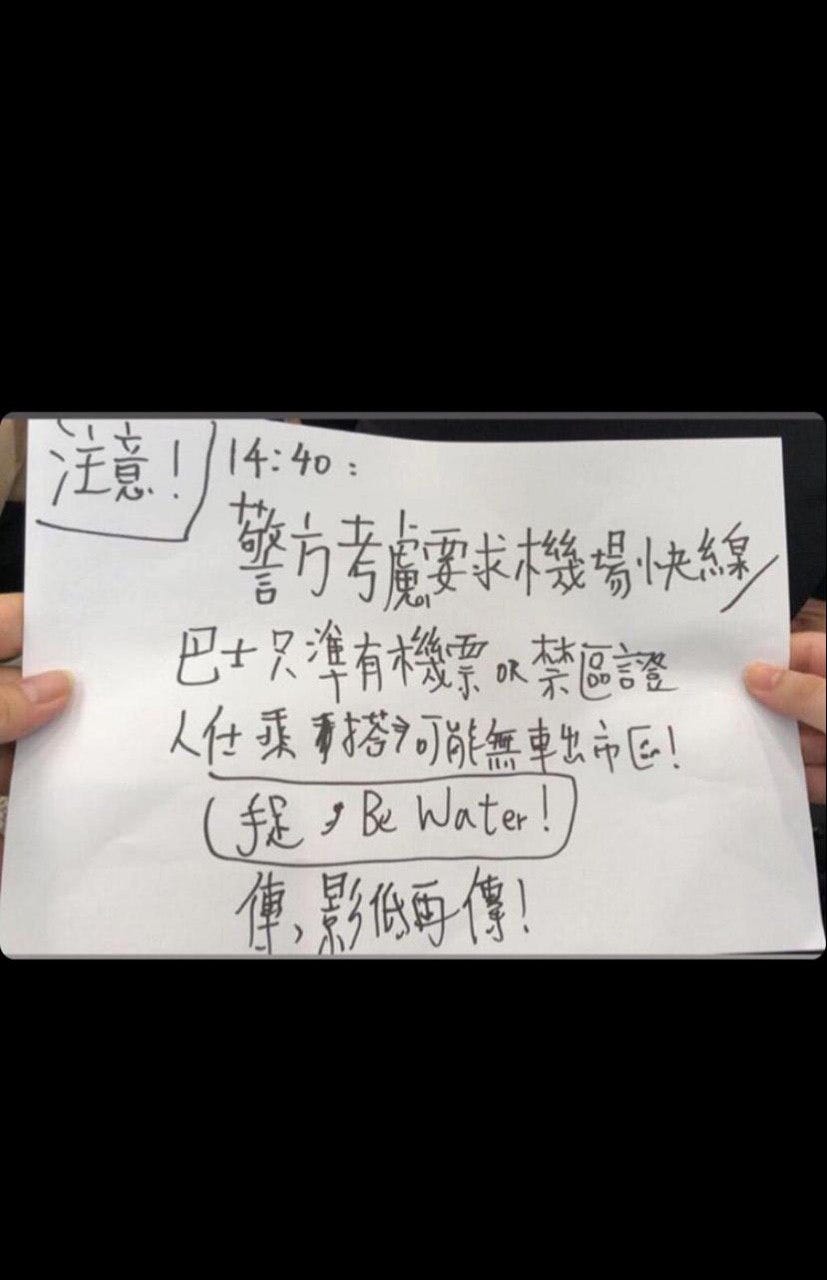 注意！
14:40：
警方考慮要求機場快線/
巴士只準有機票 OR 禁區證
人仕乘搭，可能無車出市區！
手足，Be Water!
傳，影低再傳！